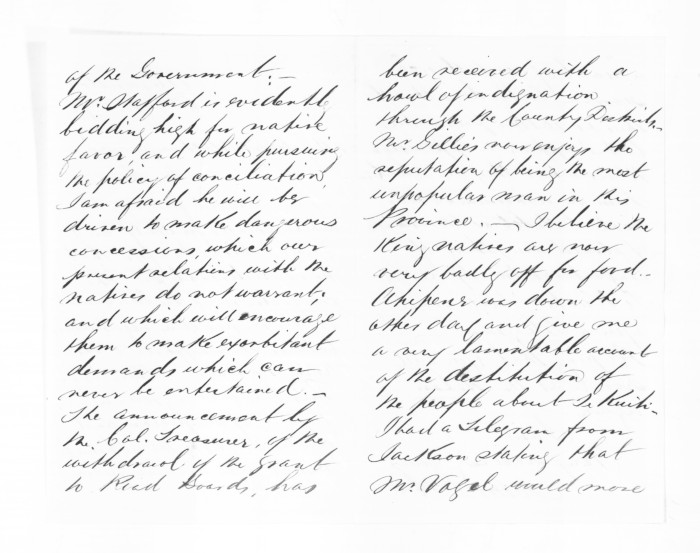 of the Government. —
Mr. Stafford is evidently
bidding high for native
favor, and while pursuing
the policy of conciliation,
I am afraid he will be
driven to make dangerous
concessions, which our
present relations with the
natives do not warrant,
and which will encourage
them to make exorbitant
demands which can
never be entertained. —
The announcement by
the Col. Treasurer, of the
withdrawal of the grant
to Road Boards, has
been received with a
howl of indignation
through the Country Districts.
Mr. Gillies now enjoys the
reputation of being the most
unpopular man in this
Province. — I believe the
King natives are now
very badly off for food. —
was down the
other day and give me
a very lamentable account
of the destitution of
the people about Te Kuiti —
I had a Telegram from
Jackson stating that
Mr. Vogel would move